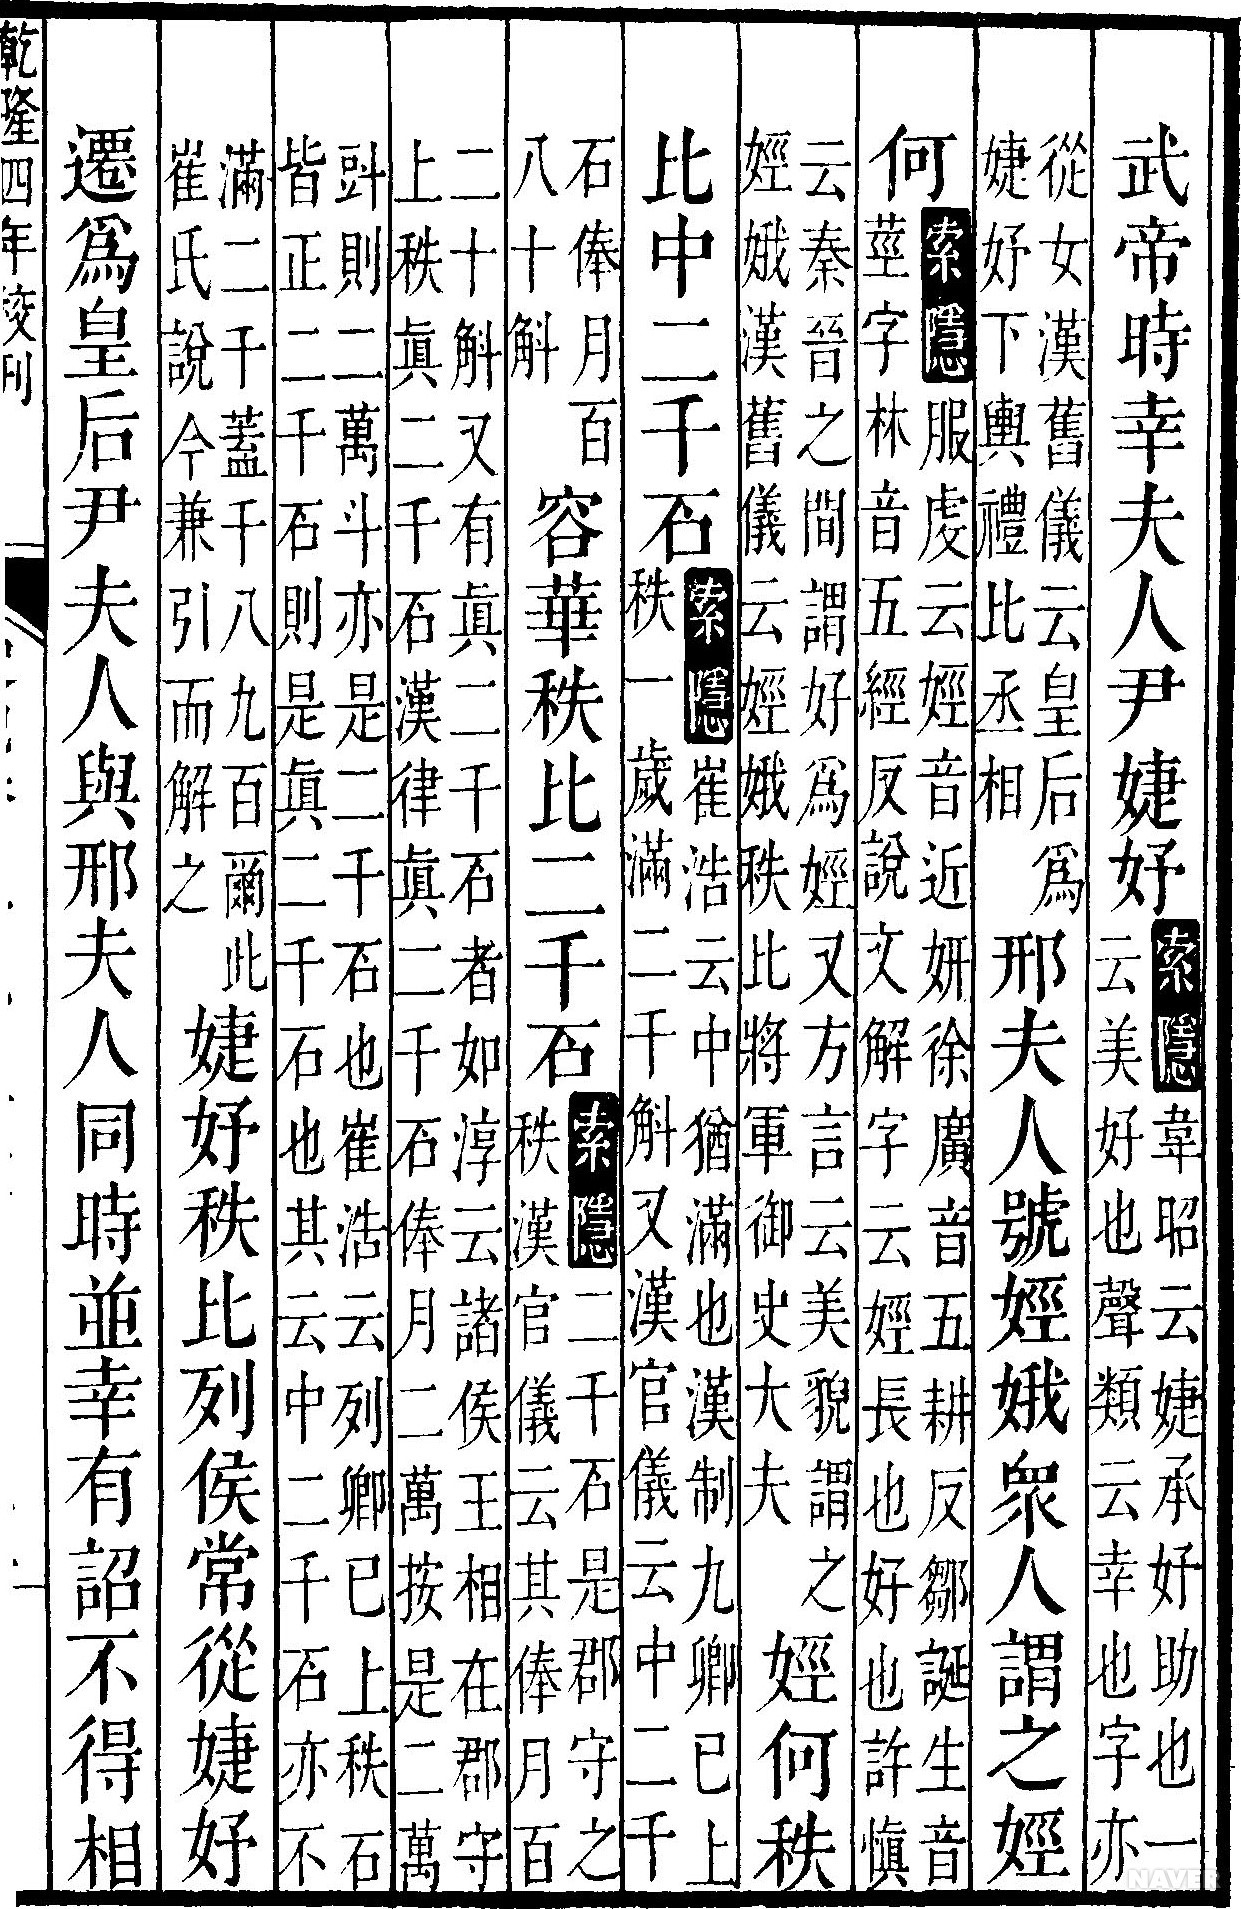 武帝時幸夫人尹婕妤索隱韋昭云婕承好助也一
云美好也聲類云幸也字亦
從女漢舊儀云皇后爲
婕妤下輿禮比丞相
邢夫人號娙娥衆人謂之娙
何索隱服虔云娙音近妍徐廣音五耕反鄒誕生音
莖字林音五經反說文解字云娙長也好也許慎
云秦晉之間謂好爲娙又方言云美貌謂之
娙娥漢舊儀云娙娥秩比將軍御史大夫
娙何秩
比中二千石索隱崔浩云中猶滿也漢制九卿已上
秩一歲滿二千斛又漢官儀云中二千
石俸月百
八十斛
容華秩比二千石索隱二千石是郡守之
秩漢官儀云其俸月百
二十斛又有眞二千石者如淳云諸侯王相在郡守
上秩眞二千石漢律眞二千石俸月二萬按是二萬
㪷則二萬斗亦是二千石也崔浩云列卿已上秩石
皆正二千石則是眞二千石也其云中二千石亦不
滿二千蓋千八九百爾此
崔氏說今兼引而解之
婕妤秩比列侯常從婕妤
遷爲皇后尹夫人與邢夫人同時並幸有詔不得相
乾隆四年校刊
NAVER